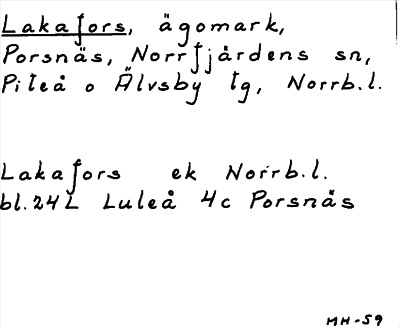 Lakafors, ägomark,
Porsnäs, Norrfjärdens sn,
Piteå o Älvsby tg, Norrb.l.
Lakafors ek Norrb.l.
bl.24L Luleå 4c Porsnäs
MH-59